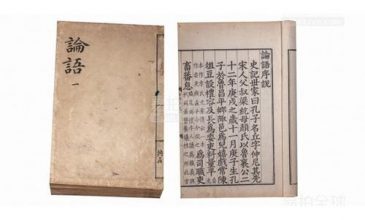 論語
一
論語序說
史記世家曰孔子名丘字仲尼其先
宋人父叔梁紇母顏氏以魯襄公二
十二年庚戌之歲十一月庚子生孔
子於魯昌平鄉陬邑爲兒嬉戲常陳
俎豆設禮容及長爲委吏料量平
爲司職吏
畜蕃息